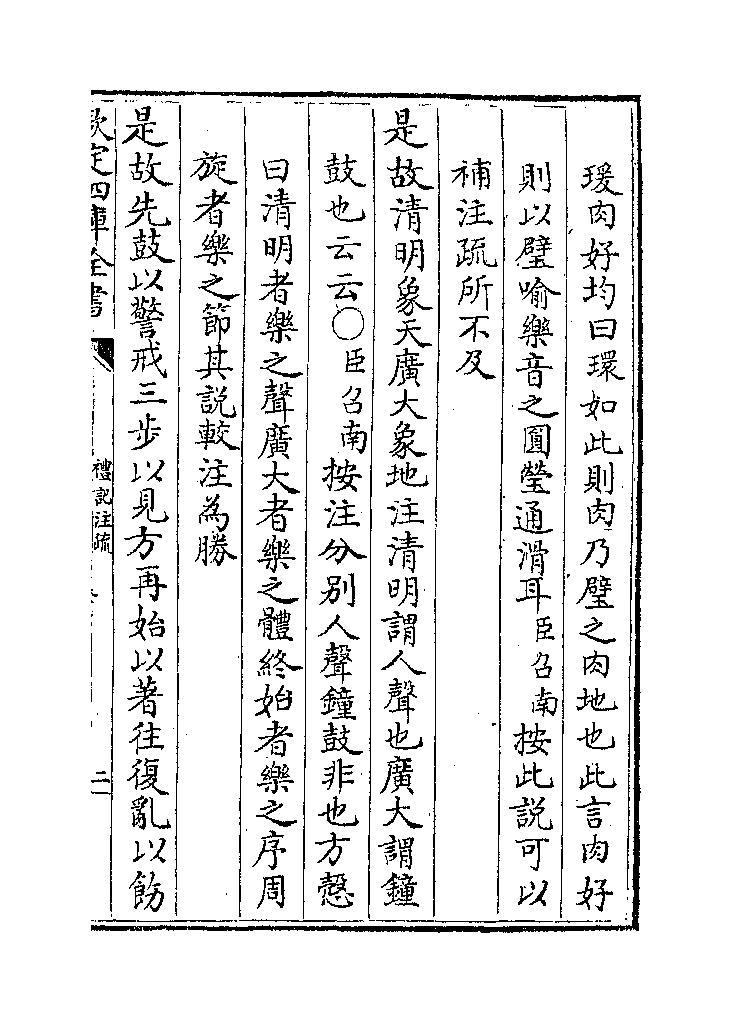 瑗肉好均曰環如此則肉乃璧之肉地也此言肉好
則以璧喻樂音之圓瑩通滑耳臣召南按此説可以
補注疏所不及
是故清明象天廣大象地注清明謂人聲也廣大謂鐘
鼓也云云○臣召南按注分别人聲鐘鼓非也方慤
曰清明者樂之聲廣大者樂之體終始者樂之序周
旋者樂之節其説較注為勝
是故先鼓以警戒三步以見方再始以著往復亂以飭
欽定四庫全書
禮記注疏
二